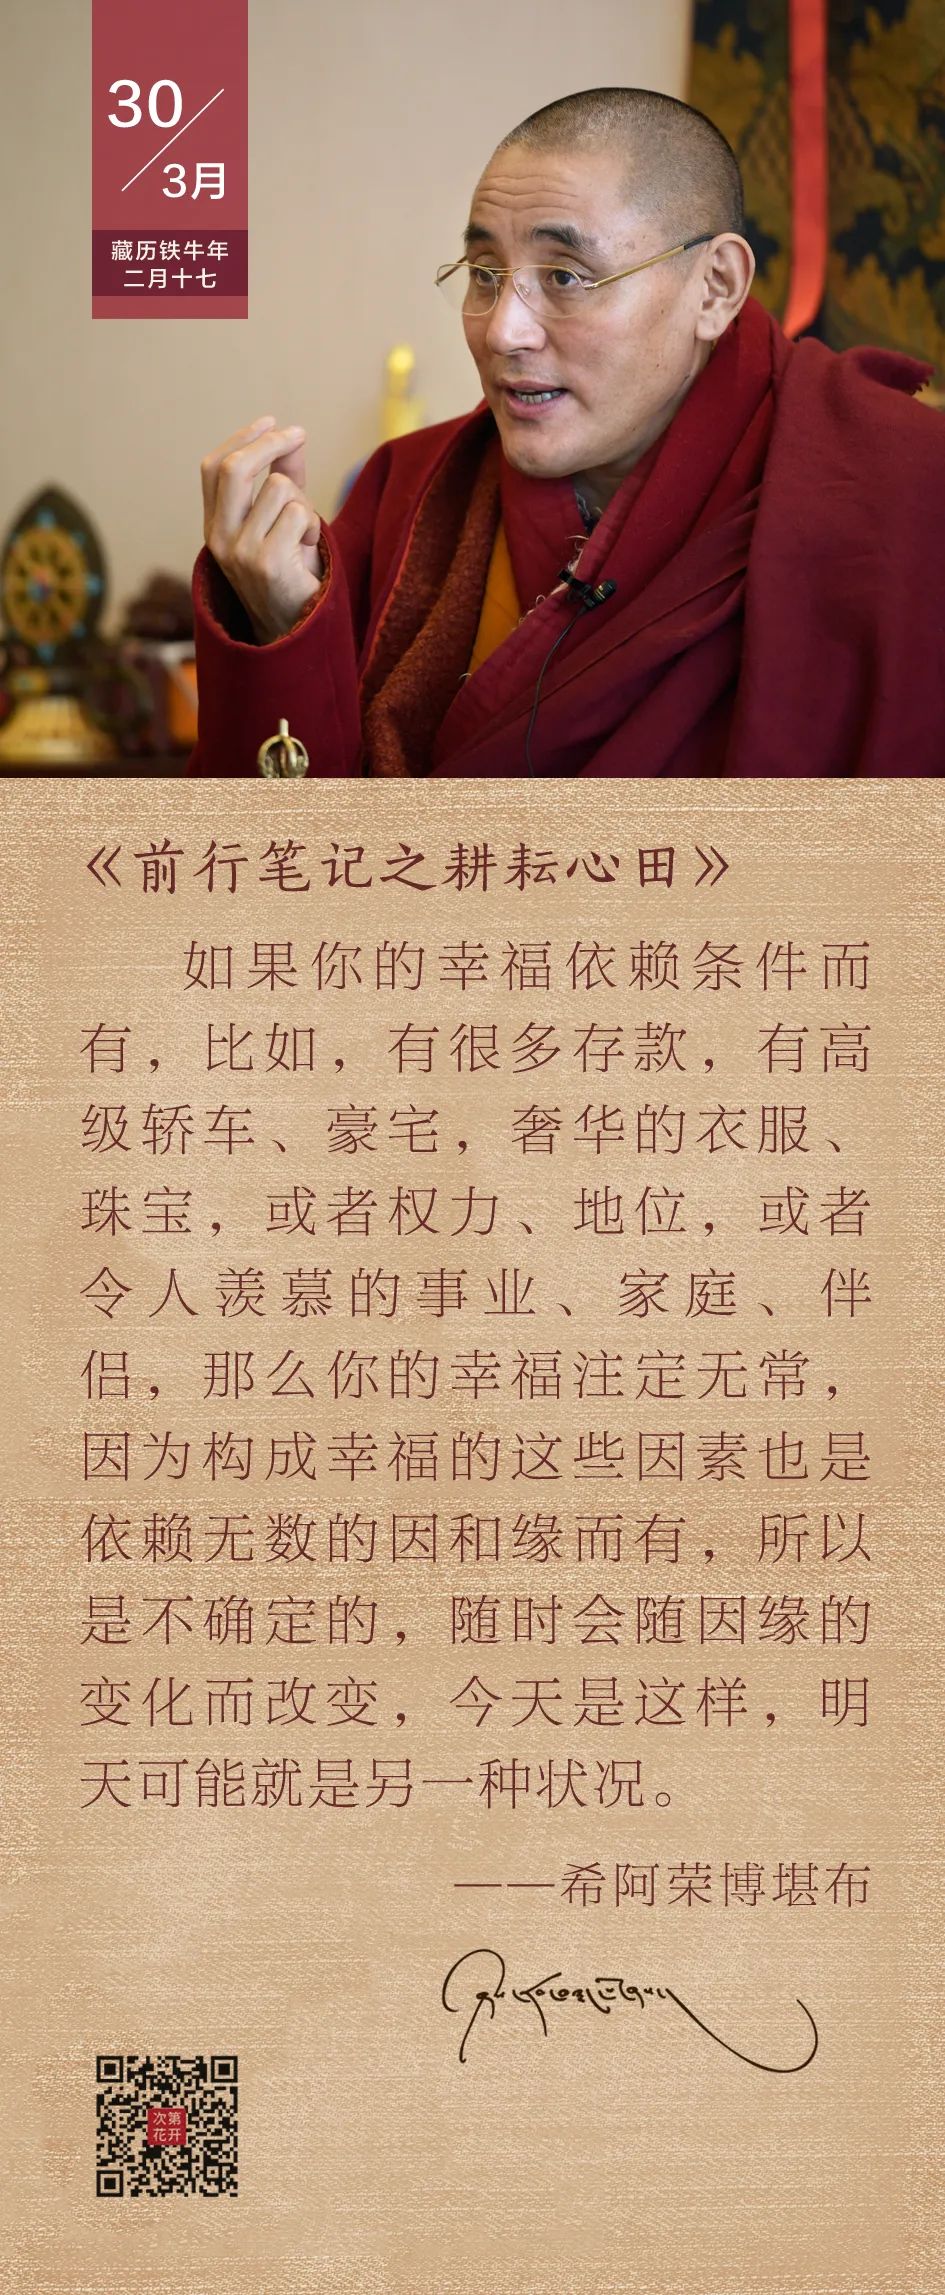 30
3月
藏历铁牛年
二月十七
《前行笔记之耕耘心田》
如果你的幸福依赖条件而
有，比如，有很多存款，有高
级轿车、豪宅，奢华的衣服、
珠宝，或者权力、地位，或者
令人羡慕的事业、家庭、伴
侣，那么你的幸福注定无常，
因为构成幸福的这些因素也是
依赖无数的因和缘而有，所以
是不确定的，随时会随因缘的
变化而改变，今天是这样，明
天可能就是另一种状况。
——希阿荣博堪布
次第
花开